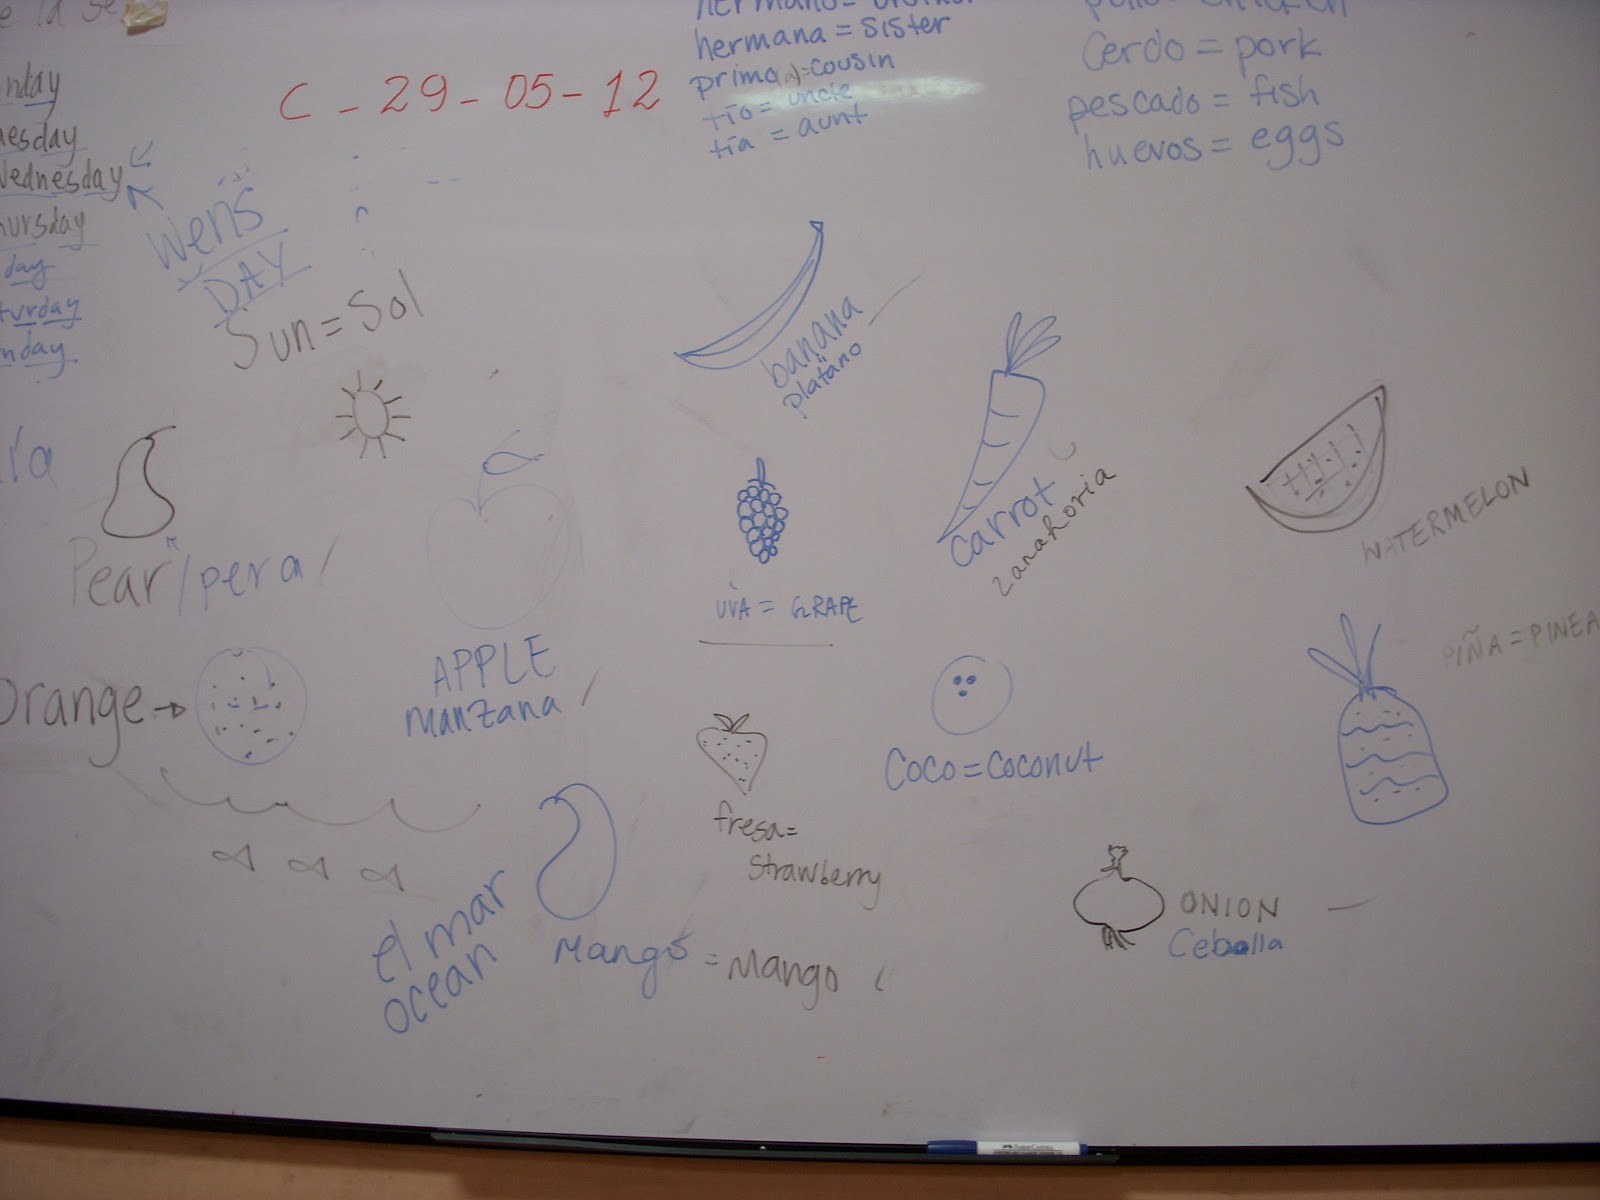 e la se
nday
esday
Wednesday
hursday
day
turday
nday
ía
C - 29 - 05 - 12
hermano = brother
hermana = sister
primo(a) = cousin
tío = uncle
tía = aunt
pollo = chicken
cerdo = pork
pescado = fish
huevos = eggs
Wens
DAY
Sun = Sol
banana
platano
Carrot
zanahoria
WATERMELON
Pear/pera
APPLE
manzana
UVA = GRAPE
PIÑA = PINEA
Orange →
COCO = COCONUT
fresa =
Strawberry
el mar
ocean
Mango = Mango
ONION
Cebolla